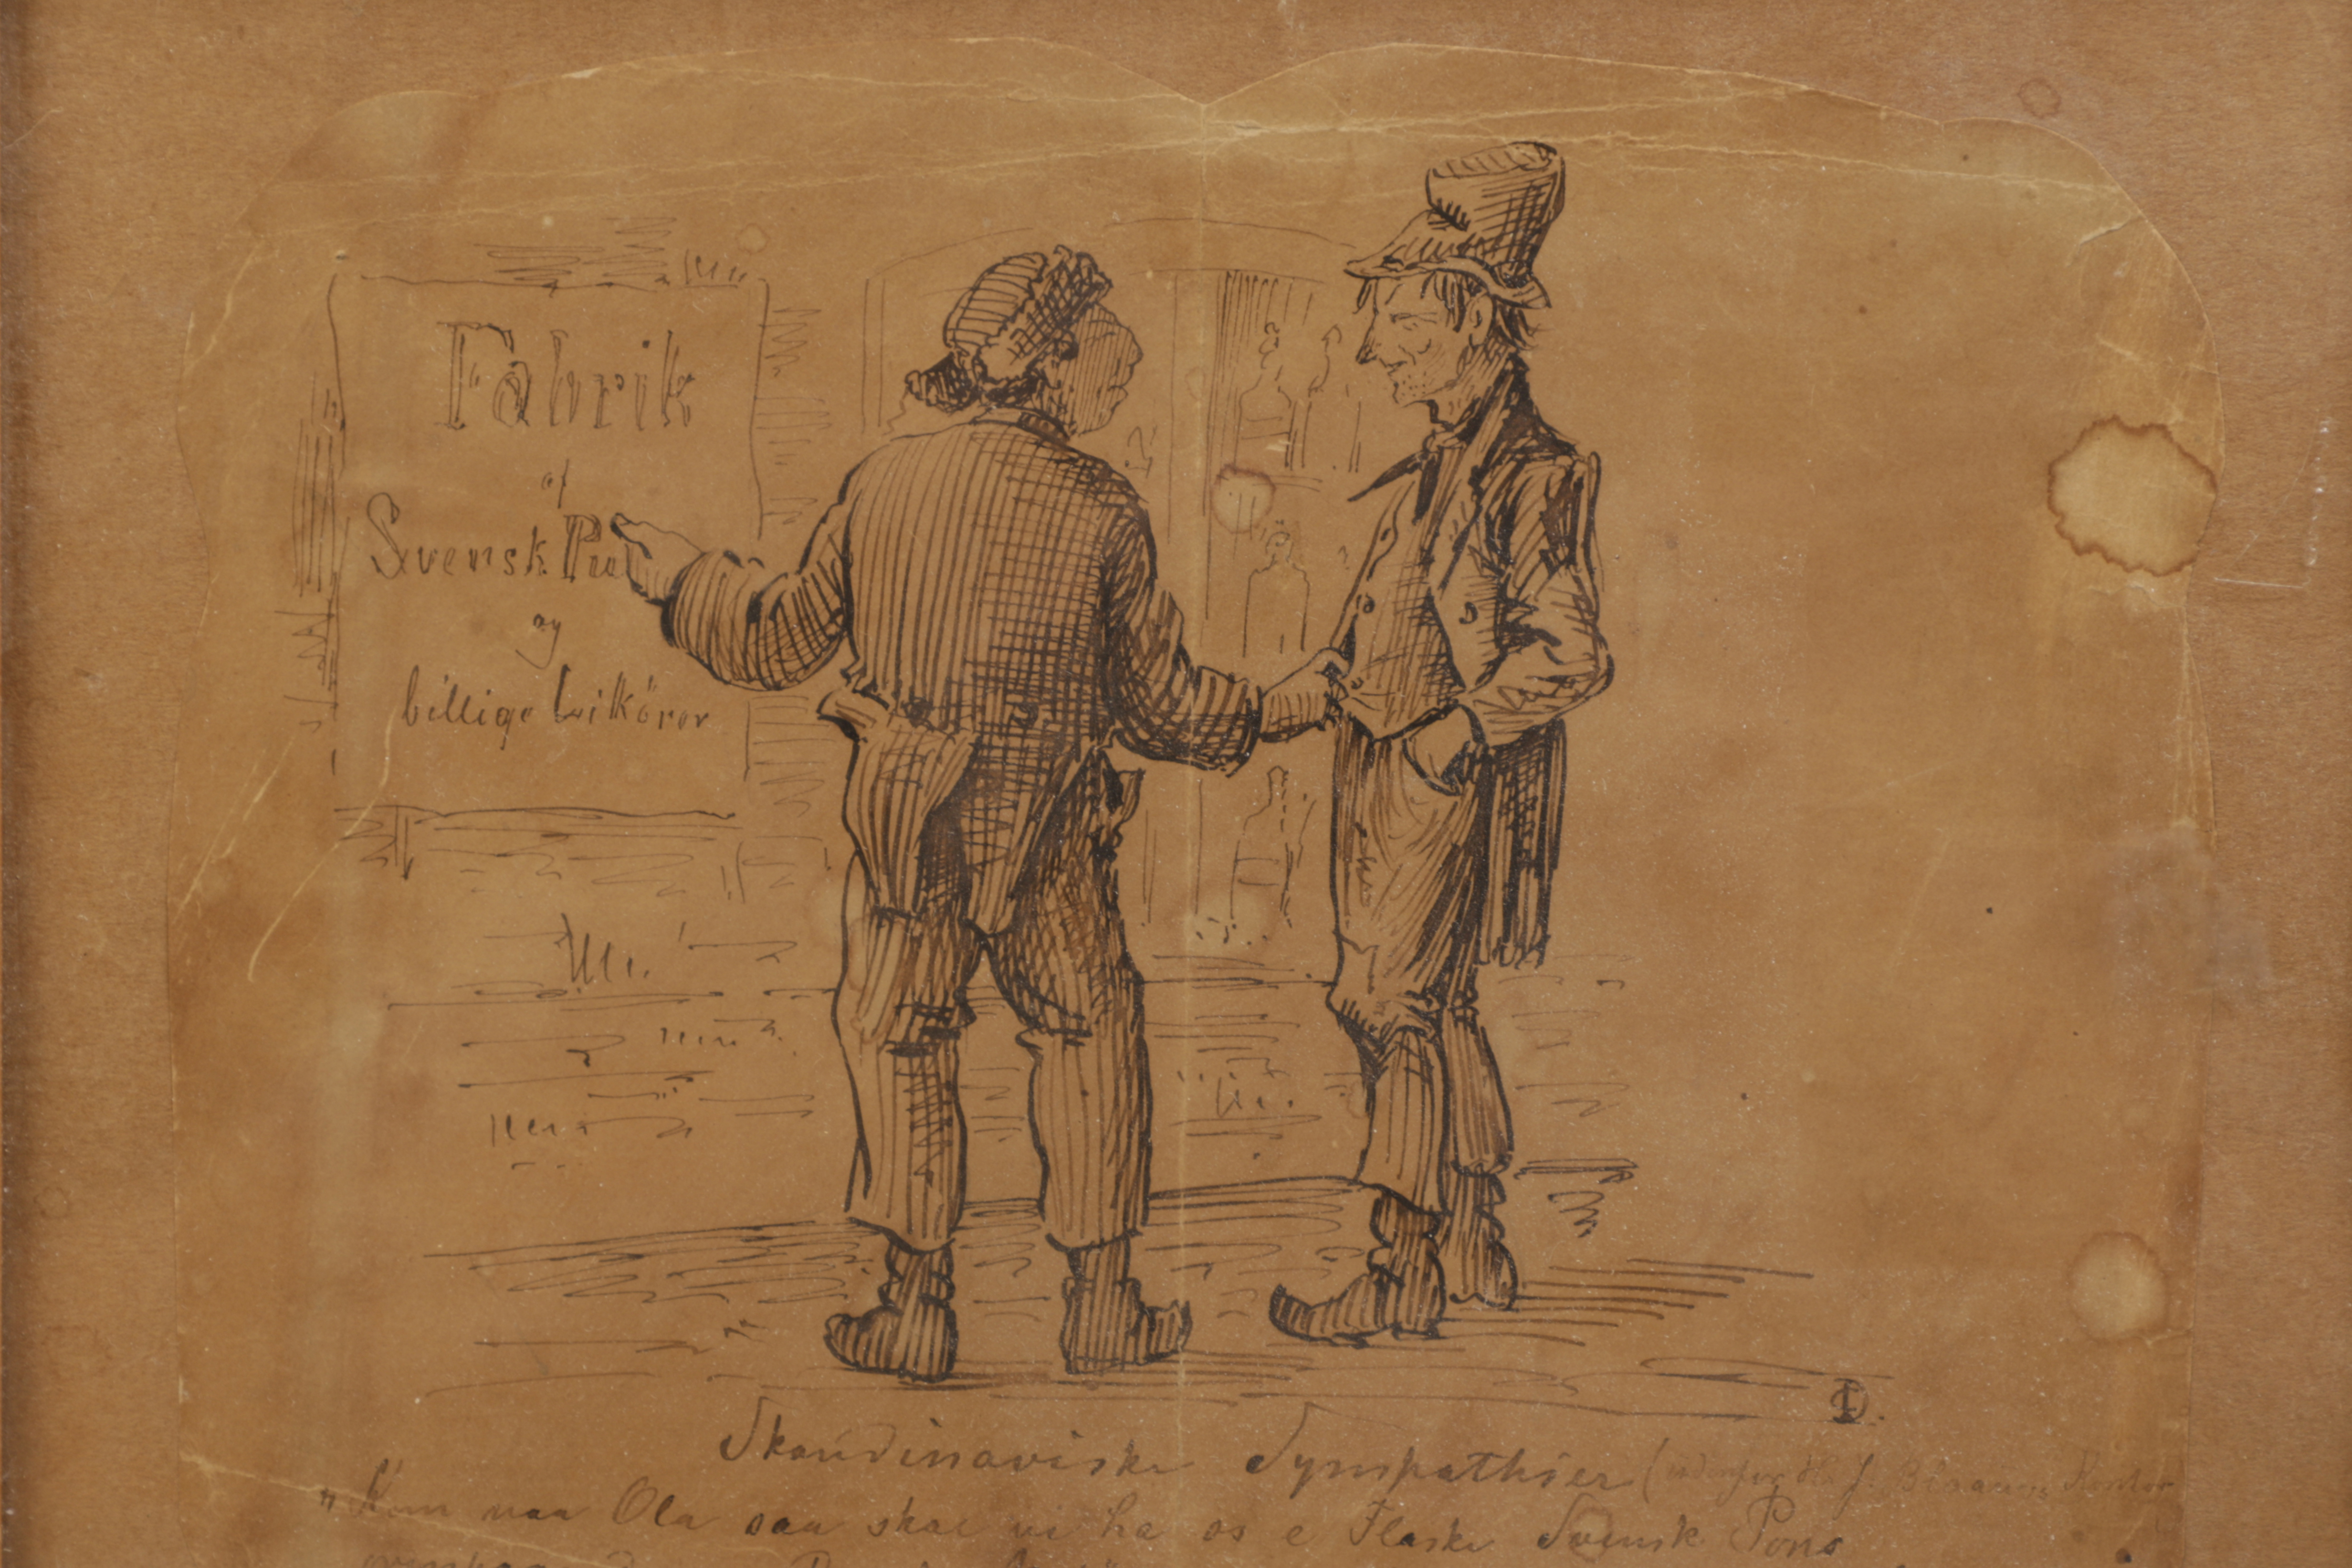 Fabrik
af
Svensk Pu
og
billige Likörer
D.
Skandinaviske Sympathier (udenfor Hr. J. Blaauws Kontor
"Kom naa Ola saa skal vi ha os e Flaske Svensk Pons